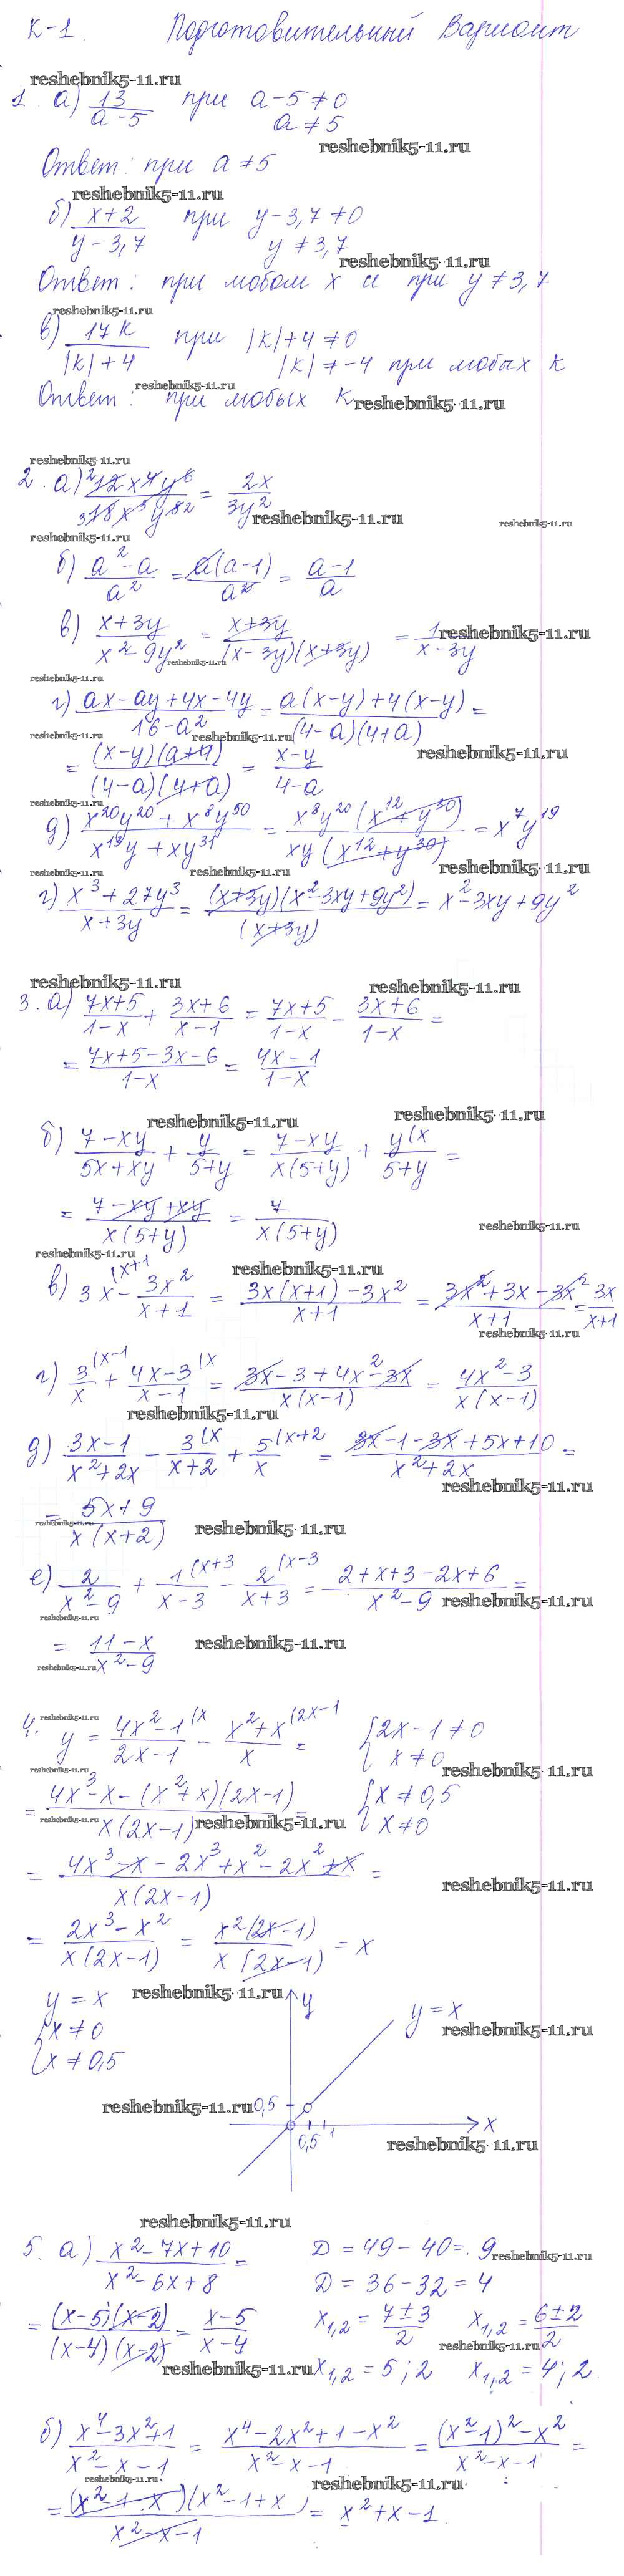 К-1. Подготовительный Вариант
reshebnik5-11.ru
1. а) 13/(a-5) при a-5≠0
a≠5
reshebnik5-11.ru
Ответ: при a≠5
reshebnik5-11.ru
б) (x+2)/(y-3,7) при y-3,7≠0
y≠3,7
reshebnik5-11.ru
Ответ: при любом x и при y≠3,7
reshebnik5-11.ru
в) 17k/(|k|+4) при |k|+4≠0
|k|≠-4 при любых k
reshebnik5-11.ru
Ответ: при любых k
reshebnik5-11.ru
reshebnik5-11.ru
2. а) 12x⁴y⁶/(18x³y⁸) = 2x/(3y²)
reshebnik5-11.ru reshebnik5-11.ru
reshebnik5-11.ru
б) (a²-a)/a² = a(a-1)/a² = (a-1)/a
в) (x+3y)/(x²-9y²) = (x+3y)/((x-3y)(x+3y)) = 1/(x-3y)
reshebnik5-11.ru
reshebnik5-11.ru
reshebnik5-11.ru
г) (ax-ay+4x-4y)/(16-a²) = (a(x-y)+4(x-y))/((4-a)(4+a)) =
reshebnik5-11.ru reshebnik5-11.ru
= (x-y)(a+4)/((4-a)(4+a)) = (x-y)/(4-a)
reshebnik5-11.ru
reshebnik5-11.ru
д) (x²⁰y²⁰+x⁸y⁵⁰)/(x¹⁹y+xy³¹) = x⁸y²⁰(x¹²+y³⁰)/(xy(x¹²+y³⁰)) = x⁷y¹⁹
reshebnik5-11.ru reshebnik5-11.ru reshebnik5-11.ru
г) (x³+27y³)/(x+3y) = (x+3y)(x²-3xy+9y²)/(x+3y) = x²-3xy+9y²
reshebnik5-11.ru reshebnik5-11.ru
3. а) (7x+5)/(1-x) + (3x+6)/(x-1) = (7x+5)/(1-x) - (3x+6)/(1-x) =
= (7x+5-3x-6)/(1-x) = (4x-1)/(1-x)
reshebnik5-11.ru reshebnik5-11.ru
б) (7-xy)/(5x+xy) + y/(5+y) = (7-xy)/(x(5+y)) + y(x/(5+y) =
= (7-xy+xy)/(x(5+y)) = 7/(x(5+y))
reshebnik5-11.ru
reshebnik5-11.ru reshebnik5-11.ru
в) 3x(x+1 - 3x²/(x+1) = (3x(x+1)-3x²)/(x+1) = (3x²+3x-3x²)/(x+1) = 3x/(x+1)
reshebnik5-11.ru
г) 3(x-1/x + 4x-3(x/(x-1) = (3x-3+4x²-3x)/(x(x-1)) = (4x²-3)/(x(x-1))
reshebnik5-11.ru
д) (3x-1)/(x²+2x) - 3(x/(x+2) + 5(x+2/x = (3x-1-3x+5x+10)/(x²+2x) =
reshebnik5-11.ru
= (5x+9)/(x(x+2))
reshebnik5-11.ru reshebnik5-11.ru
е) 2/(x²-9) + 1(x+3/(x-3) - 2(x-3/(x+3) = (2+x+3-2x+6)/(x²-9) =
reshebnik5-11.ru reshebnik5-11.ru
= (11-x)/(x²-9)
reshebnik5-11.ru reshebnik5-11.ru
reshebnik5-11.ru
4. y = 4x²-1(x/(2x-1) - x²+x(2x-1/x = { 2x-1≠0
x≠0
reshebnik5-11.ru reshebnik5-11.ru
= (4x³-x-(x²+x)(2x-1))/(x(2x-1)) = { x≠0,5
x≠0
reshebnik5-11.ru reshebnik5-11.ru
= (4x³-x-2x³+x²-2x²+x)/(x(2x-1)) =
reshebnik5-11.ru
= (2x³-x²)/(x(2x-1)) = x²(2x-1)/(x(2x-1)) = x
y = x reshebnik5-11.ru y
{ x≠0 y=x
x≠0,5 reshebnik5-11.ru
reshebnik5-11.ru 0,5
x
0,5 1 reshebnik5-11.ru
reshebnik5-11.ru
5. а) (x²-7x+10)/(x²-6x+8) = D = 49-40 = 9
reshebnik5-11.ru
D = 36-32 = 4
= (x-5)(x-2)/((x-4)(x-2)) = (x-5)/(x-4) x₁,₂ = (7±3)/2 x₁,₂ = (6±2)/2
reshebnik5-11.ru
reshebnik5-11.ru x₁,₂ = 5; 2 x₁,₂ = 4; 2
б) (x⁴-3x²+1)/(x²-x-1) = (x⁴-2x²+1-x²)/(x²-x-1) = ((x²-1)²-x²)/(x²-x-1) =
reshebnik5-11.ru reshebnik5-11.ru
= (x²-1-x)(x²-1+x)/(x²-x-1) = x²+x-1.